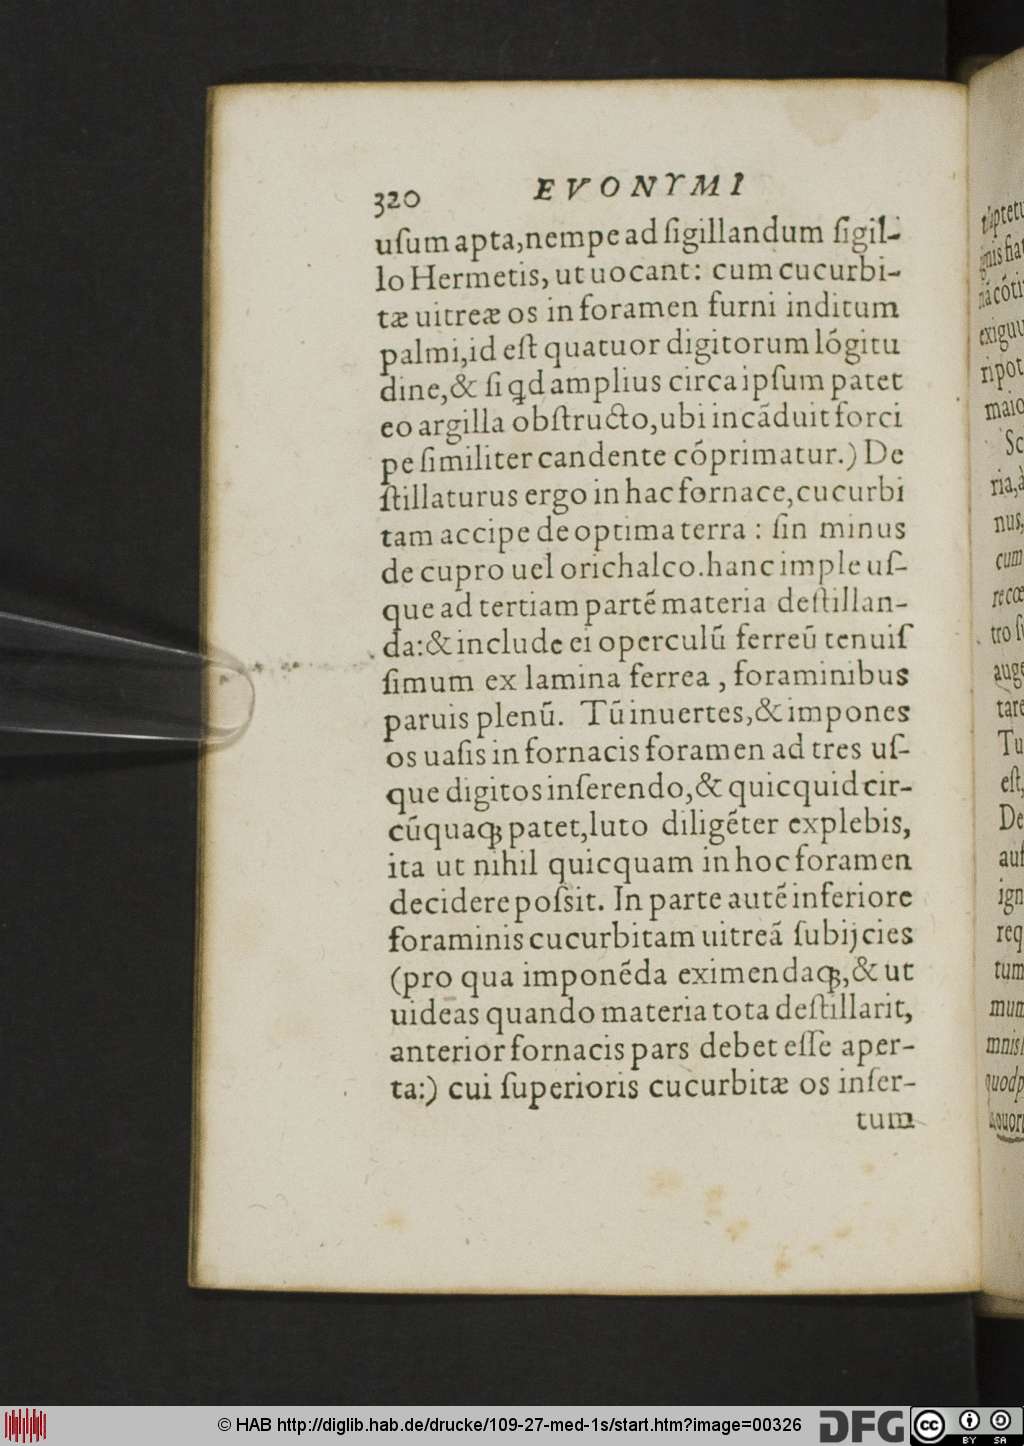 320 EVONYMI
uſum apta, nempe ad ſigillandum ſigil-
lo Hermetis, ut uocant: cum cucurbi-
tæ uitreæ os in foramen furni inditum
palmi, id eſt quatuor digitorum lõgitu
dine, & ſi qd amplius circa ipſum patet
eo argilla obſtructo, ubi incãduit forci
pe ſimiliter candente cõprimatur.) De
ſtillaturus ergo in hac fornace, cucurbi
tam accipe de optima terra: ſin minus
de cupro uel orichalco. hanc imple uſ-
que ad tertiam partẽ materia deſtillan-
da: & include ei operculũ ferreũ tenuiſ
ſimum ex lamina ferrea, foraminibus
paruis plenũ. Tũ inuertes, & impones
os uaſis in fornacis foramen ad tres uſ-
que digitos inſerendo, & quicquid cir-
cũquaqꝫ patet, luto diligẽter explebis,
ita ut nihil quicquam in hoc foramen
decidere poſsit. In parte autẽ inferiore
foraminis cucurbitam uitreã ſubijcies
(pro qua imponẽda eximendaqꝫ, & ut
uideas quando materia tota deſtillarit,
anterior fornacis pars debet eſſe aper-
ta:) cui ſuperioris cucurbitæ os inſer-
tum
nus,
cum
auge
tare
Tu
eſt,
De
auſ
ign
req
tum
© HAB http://diglib.hab.de/drucke/109-27-med-1s/start.htm?image=00326
DFG
cc
BY SA